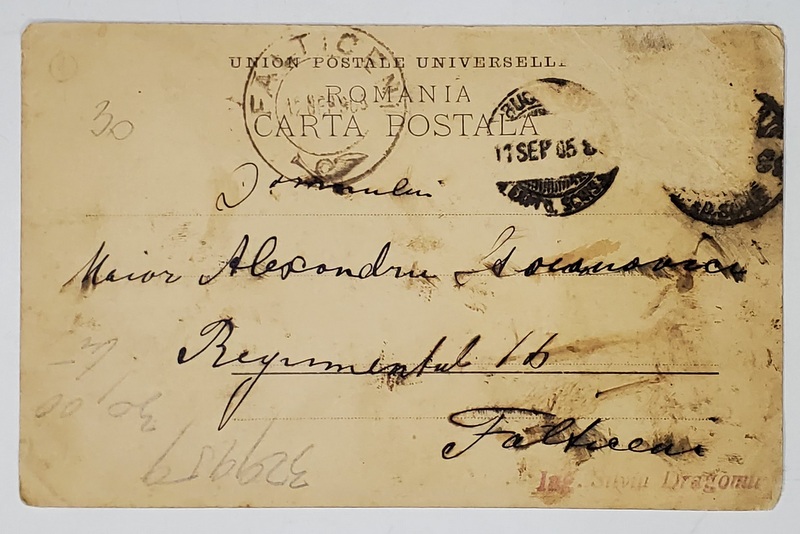 UNION POSTALE UNIVERSELLE
ROMANIA
CARTA POSTALA
FALTICENI
BUC
11 SEP 05 8
30
Domnului
Maior Alexandru
Regimentul 16
Falticeni
30,00
329959
Ing. Silviu Dragomir